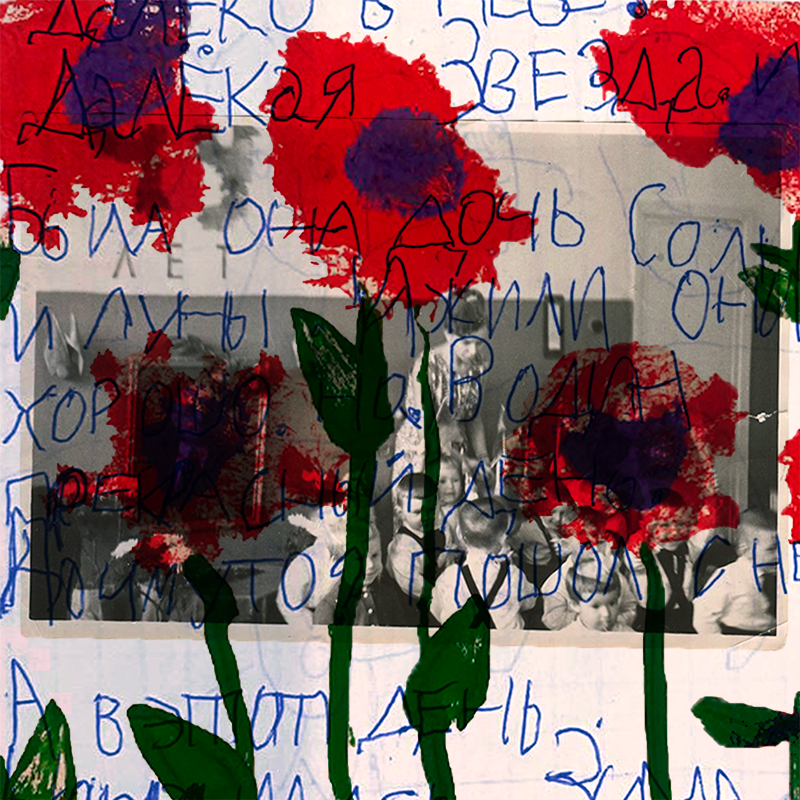 ДАЛЕКО В НЕБ
ДАЛЁКАЯ ЗВЕЗДА. И
БЫЛА ОНА ДОЧЬ СОЛН
ЛЕТ
И ЛУНЫ ИЖИЛИ ОНИ
ХОРОШО. НО В ОДИН
ПРЕКРАСНЫЙ ДЕНЬ.
ПОШОЛ С НЕ
А В ЭТОТ ДЕНЬ